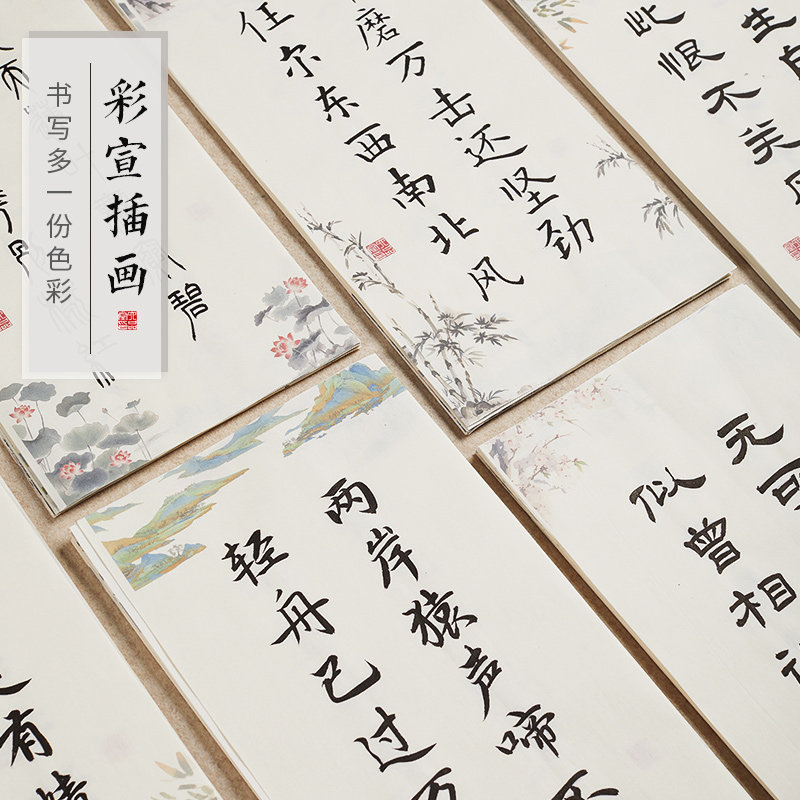 彩宣插画
书写多一份色彩
磨万击还坚劲
任尔东西南北风
生自
此恨不关
碧
两岸猿声啼不
轻舟已过万
无可
似曾相
有